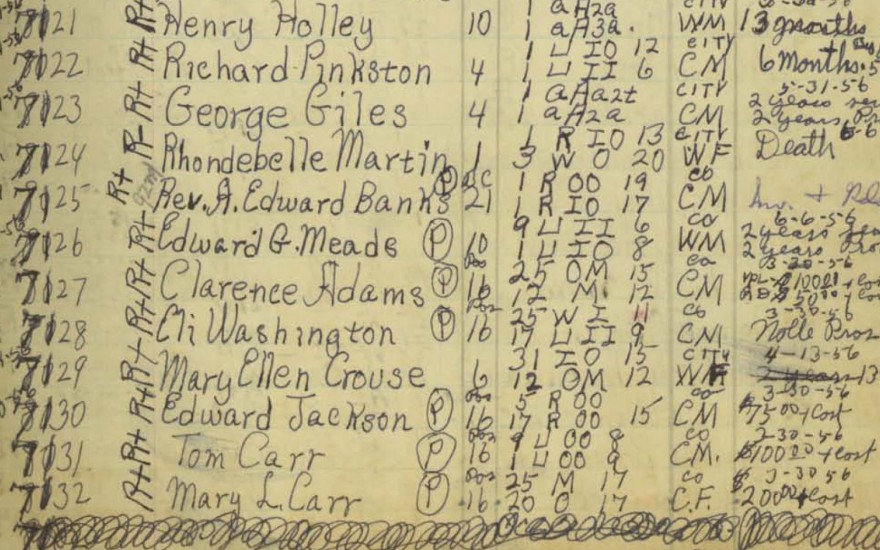 7121 R+ Henry Holley 10 1 aA2a 1 aA3a. WM 13 months
7122 R+ Richard Pinkston 4 1 U IO 12 1 U II 6 CITY CM 6 Months.
7123 R+ George Giles 4 1 aAa2t 1 aA2a CITY CM 5-31-56 2 years 2 years
7124 R+ Rhondebelle Martin 1 1 R IO 13 3 W O 20 CITY WF Death
7125 R+ Rev. A. Edward Banks 21 1 R OO 19 1 R IO 17 co CM
7126 R+ Edward G. Meads P 10 9 U II 6 1 U IO 8 co WM 6-6-56 2 years 2 years
7127 R+ Clarence Adams P 16 25 OM 15 12 M 12 co CM 3-30-56
7128 R+ Eli Washington P 16 25 W I 11 17 U II 9 co CM 3-30-56 Nolle Pros
7129 R+ Mary Ellen Crouse 6 31 IO 15 12 OM 12 CITY WF 4-13-56 2 years 13
7130 R+ Edward Jackson P 16 5 R OO 17 R OO 15 co CM 3-30-56 $75 00 + Cost
7131 R+ Tom Carr P 16 9 U OO 8 1 U OO 9 co CM. $100 00 + cost
7132 R+ Mary L. Carr P 16 25 M 17 20 O 17 co C.F. 3-30 56 $200 00 + cost